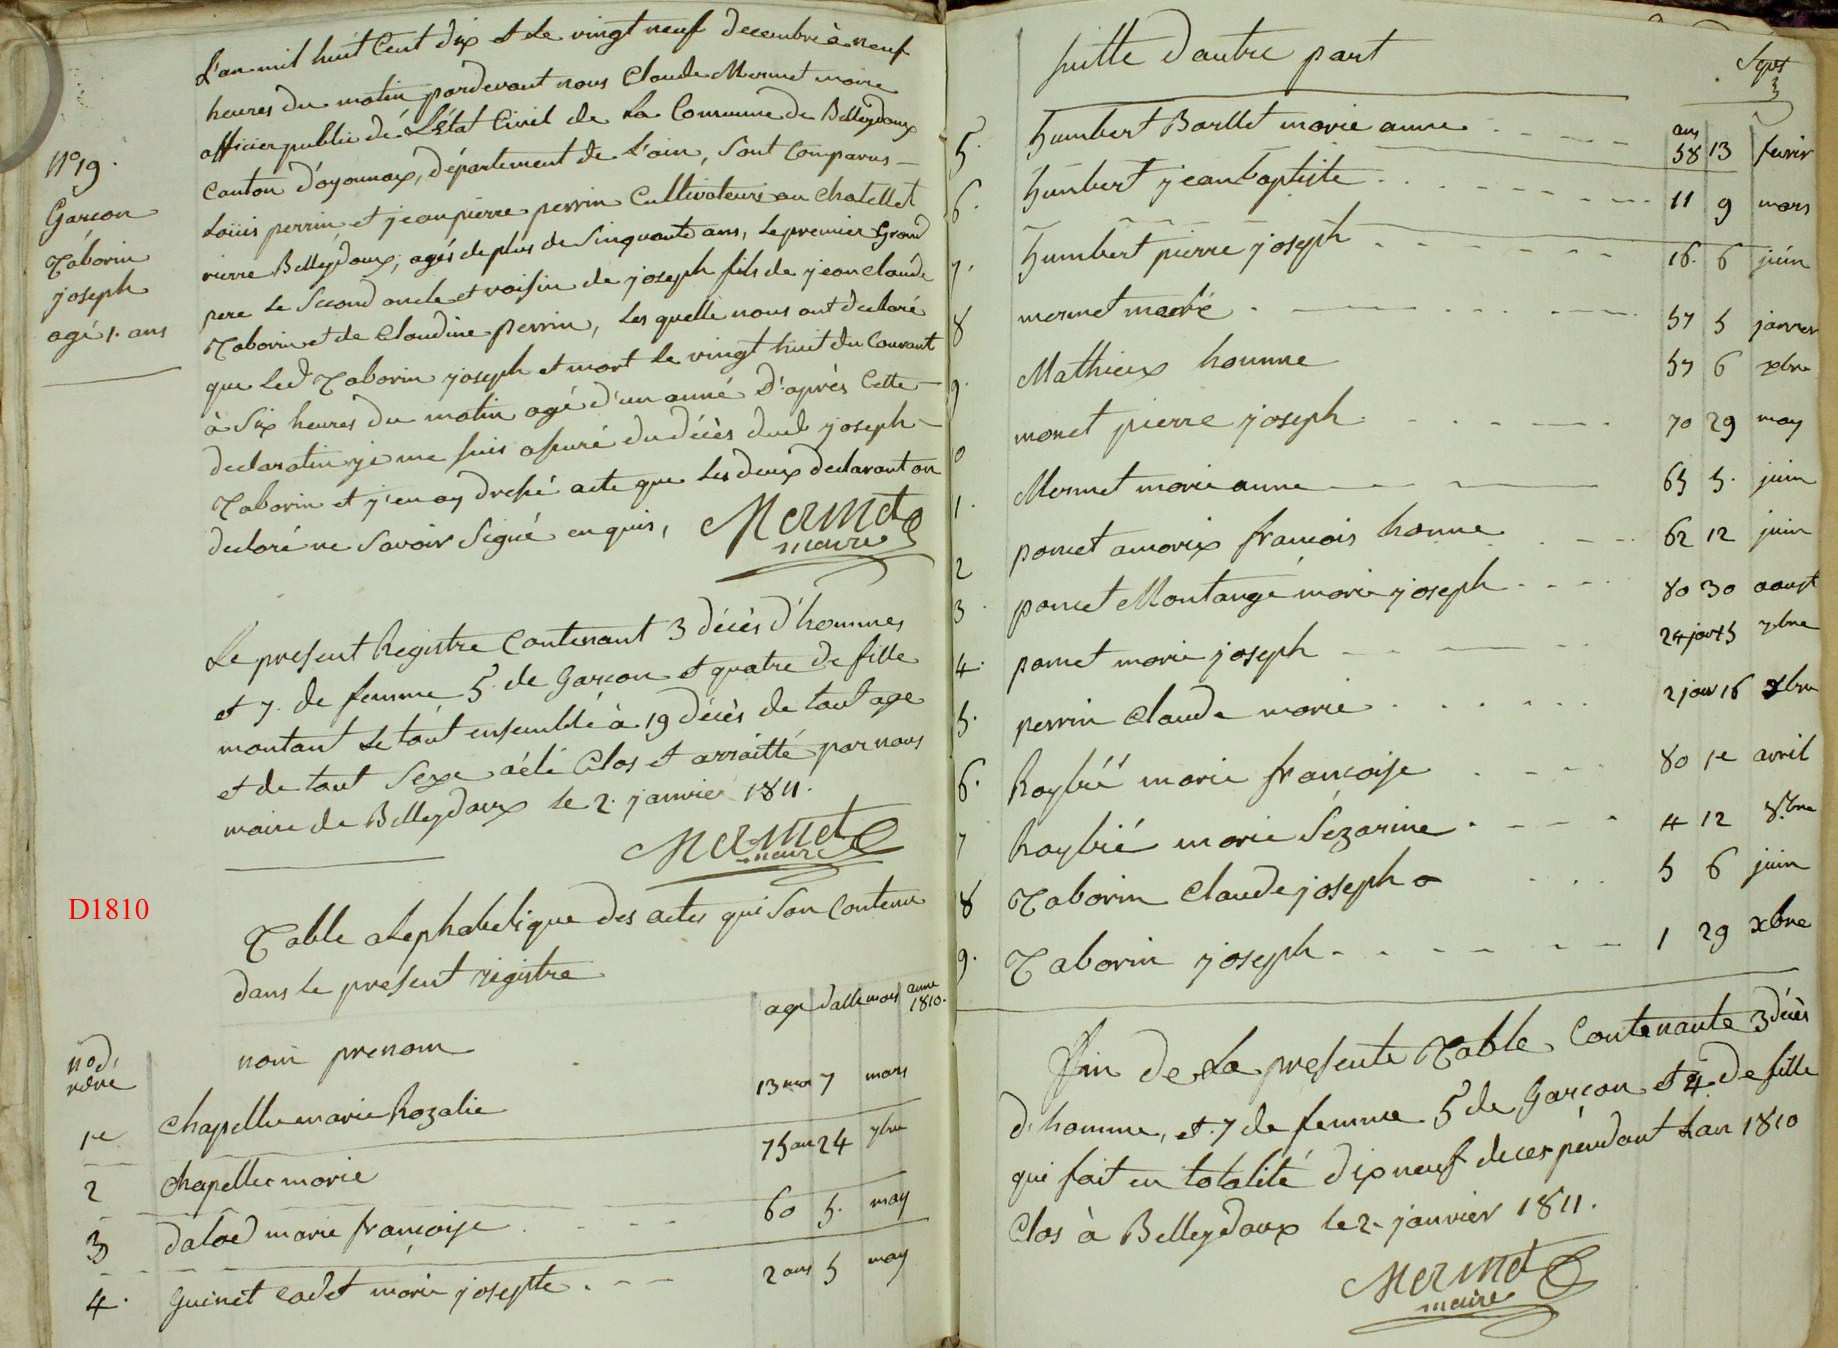 L'an mil huit Cent dix et Le vingt neuf decembre à neuf
heures du matin pardevant nous Claude Mermet maire
officier public de L'État Civil de La Commune de Belleydoux
Canton d'oyonnax, département de L'ain, sont Comparus
Loüis perrin et jean pierre perrin Cultivateurs au Chatellet
rierre Belleydoux, agés de plus de sinquante ans, Le premier Grand
pere Le second oncle et voisin de joseph fils de jean claude
Taborin et de Claudine perrin, Les quelle nous ont declaré
que Led Taborin joseph et mort Le vingt huit du Courant
à six heures du matin agé d'un anné D'après Cette
declaration je me suis assuré du décès dud joseph
Taborin et j'en ay dressé acte que Les deux declarant on
declaré ne savoir signé enquis, Mermet
maire
N° 19.
Garcon
Taborin
joseph
agé 1. ans
Le present Registre Contenant 3 décès d'hommes
et 7. de femme 5. de Garcon et quatre de fille
montant Le tout ensemble à 19 décès de tout age
et de tout sexe a été Clos et arraitté par nous
maire de Belleydoux le 2. janvier 1811.
Mermet
maire
D1810
Table alephabetique des actes qui son Contenu
dans le present registre
nom prenom age datte mois anné 1810.
1re Chapellu marie Rozalie 13 moi 7 mars
2 Chapellu marie 75 an 24 7bre
3 daloed marie francoise 60 5. may
4. Guinet Cadet marie josepte 2 ans 5 may
suitte d'autre part
5. humbert Barllet marie anne ans 58 13 fevrir
6. humbert jean baptiste 11 9 mars
7. humbert pierre joseph 16. 6 juin
8 mermet marie 57 5 janvier
9. Mathieux homme 57 6 xbre
0 monet pierre joseph 70 29 may
1. Mermet marie anne 65 5. juin
2 poncet amorix francois homme 62 12 juin
3 poncet Montangé marie joseph 80 30 aoust
4. poncet marie joseph 24 jour 5 7bre
5. perrin Claude marie 2 jour 16 xbre
6. Roybié marie francoise 80 1e avril
7 Roybié marie Sezarine 4 12 8bre
8 Taborin Claude joseph 5 6 juin
9. Taborin joseph 1 29 xbre
fin de La presente Table Contenante 3 décès
d'homme, et 7 de femme 5 de Garcon et 4 de fille
qui fait en totalité dix neuf deces pendant Lan 1810
Clos à Belleydoux le 2. janvier 1811.
Mermet
maire